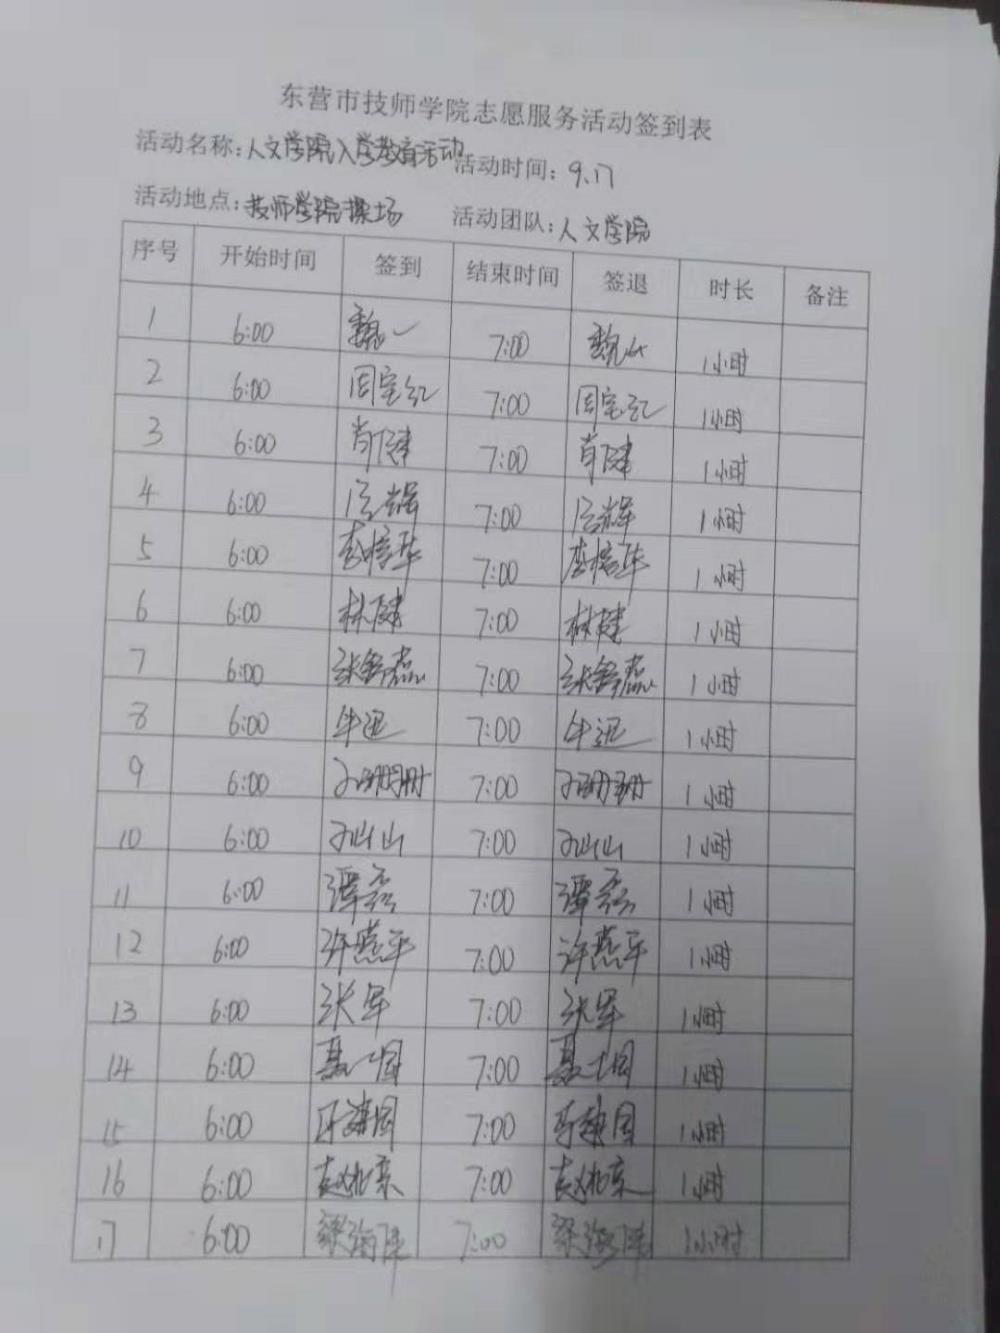 东营市技师学院志愿服务活动签到表
活动名称:人文学院入学教育活动 活动时间: 9.17
活动地点:技师学院操场 活动团队:人文学院
序号 开始时间 签到 结束时间 签退 时长 备注
1 6:00 魏一 7:00 1小时
2 6:00 周宝红 7:00 周宝红 1小时
3 6:00 肖健 7:00 肖健 1小时
4 6:00 7:00 1小时
5 6:00 李培华 7:00 李培华 1小时
6 6:00 林健 7:00 林健 1小时
7 6:00 7:00 1小时
8 6:00 牛迅 7:00 牛迅 1小时
9 6:00 孙珊珊 7:00 孙珊珊 1小时
10 6:00 孙山山 7:00 孙山山 1小时
11 6:00 7:00 1小时
12 6:00 许燕平 7:00 许燕平 1小时
13 6:00 张军 7:00 张军 1小时
14 6:00 7:00 1小时
15 6:00 7:00 1小时
16 6:00 7:00 1小时
17 6:00 7:00 1小时